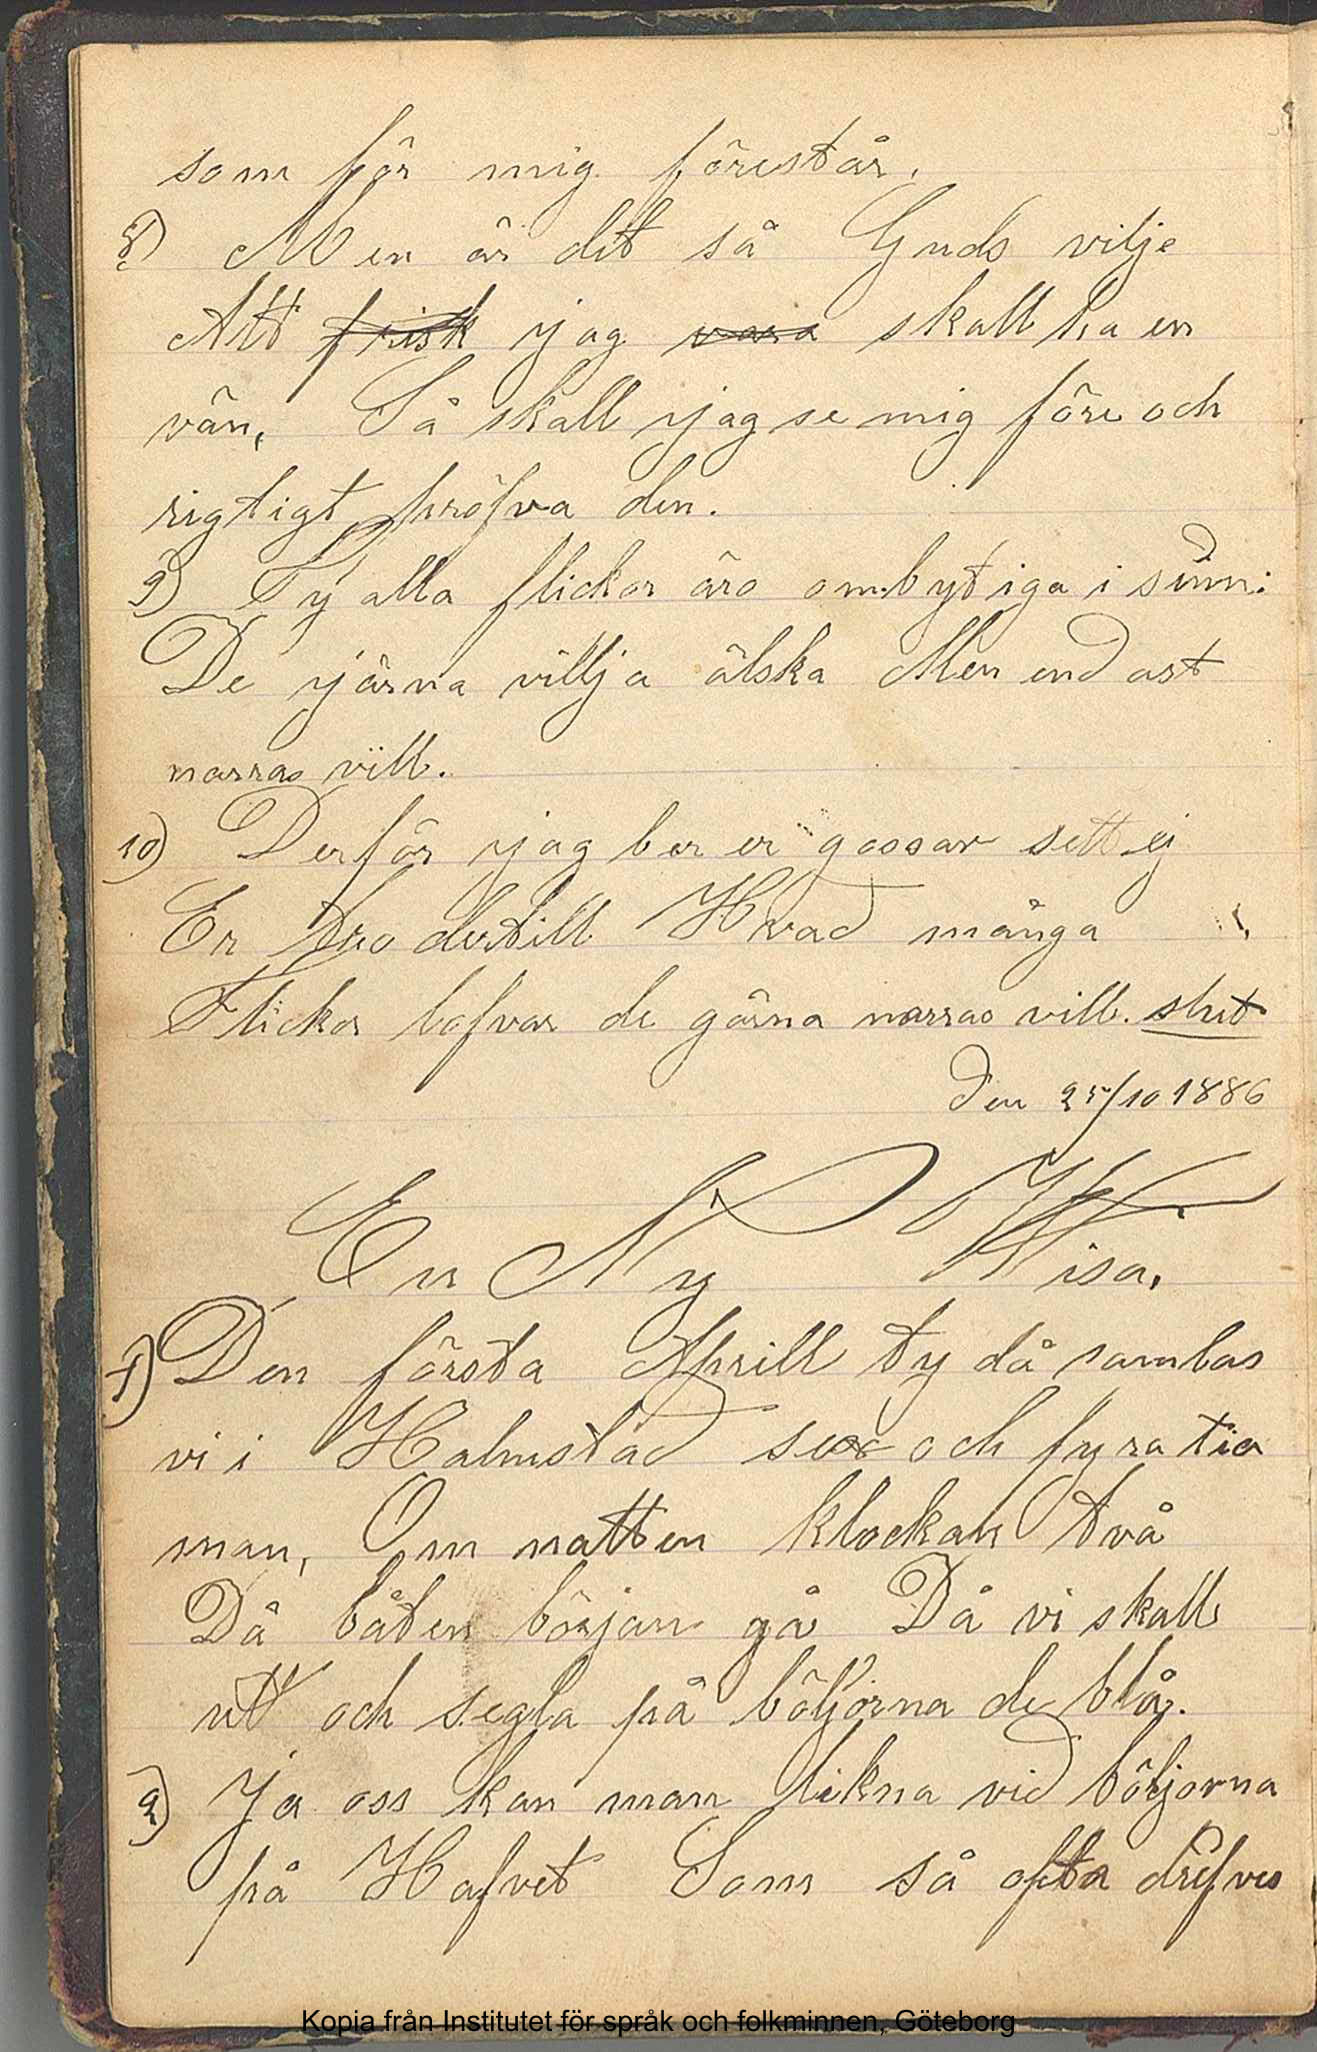 som för mig förestår.
8) Men är det så Guds vilje
Att frisk jag vara skall ha en
vän, Så skall jag se mig före och
rigtigt pröfva den.
9) Ty alla flickor äro ombytiga i sinn:
De järna villja älska Men endast
narras vill.
10) Derför jag ber er gossar sett ej
Er tro dertill Hvad många
Flickor lofvar de gärna narras vill. slut
Den 25/10 1886
En Ny Wisa.
1) Den första Aprill ty då samlas
vi i Halmstad sex och fyratio
man, Om natten klockan två
Då båten början gå Då vi skall
ut och segla på böljorna de blå.
2) Ja oss kan man likna vid böljorna
på Hafvet Som så ofta drifves
Kopia från Institutet för språk och folkminnen, Göteborg